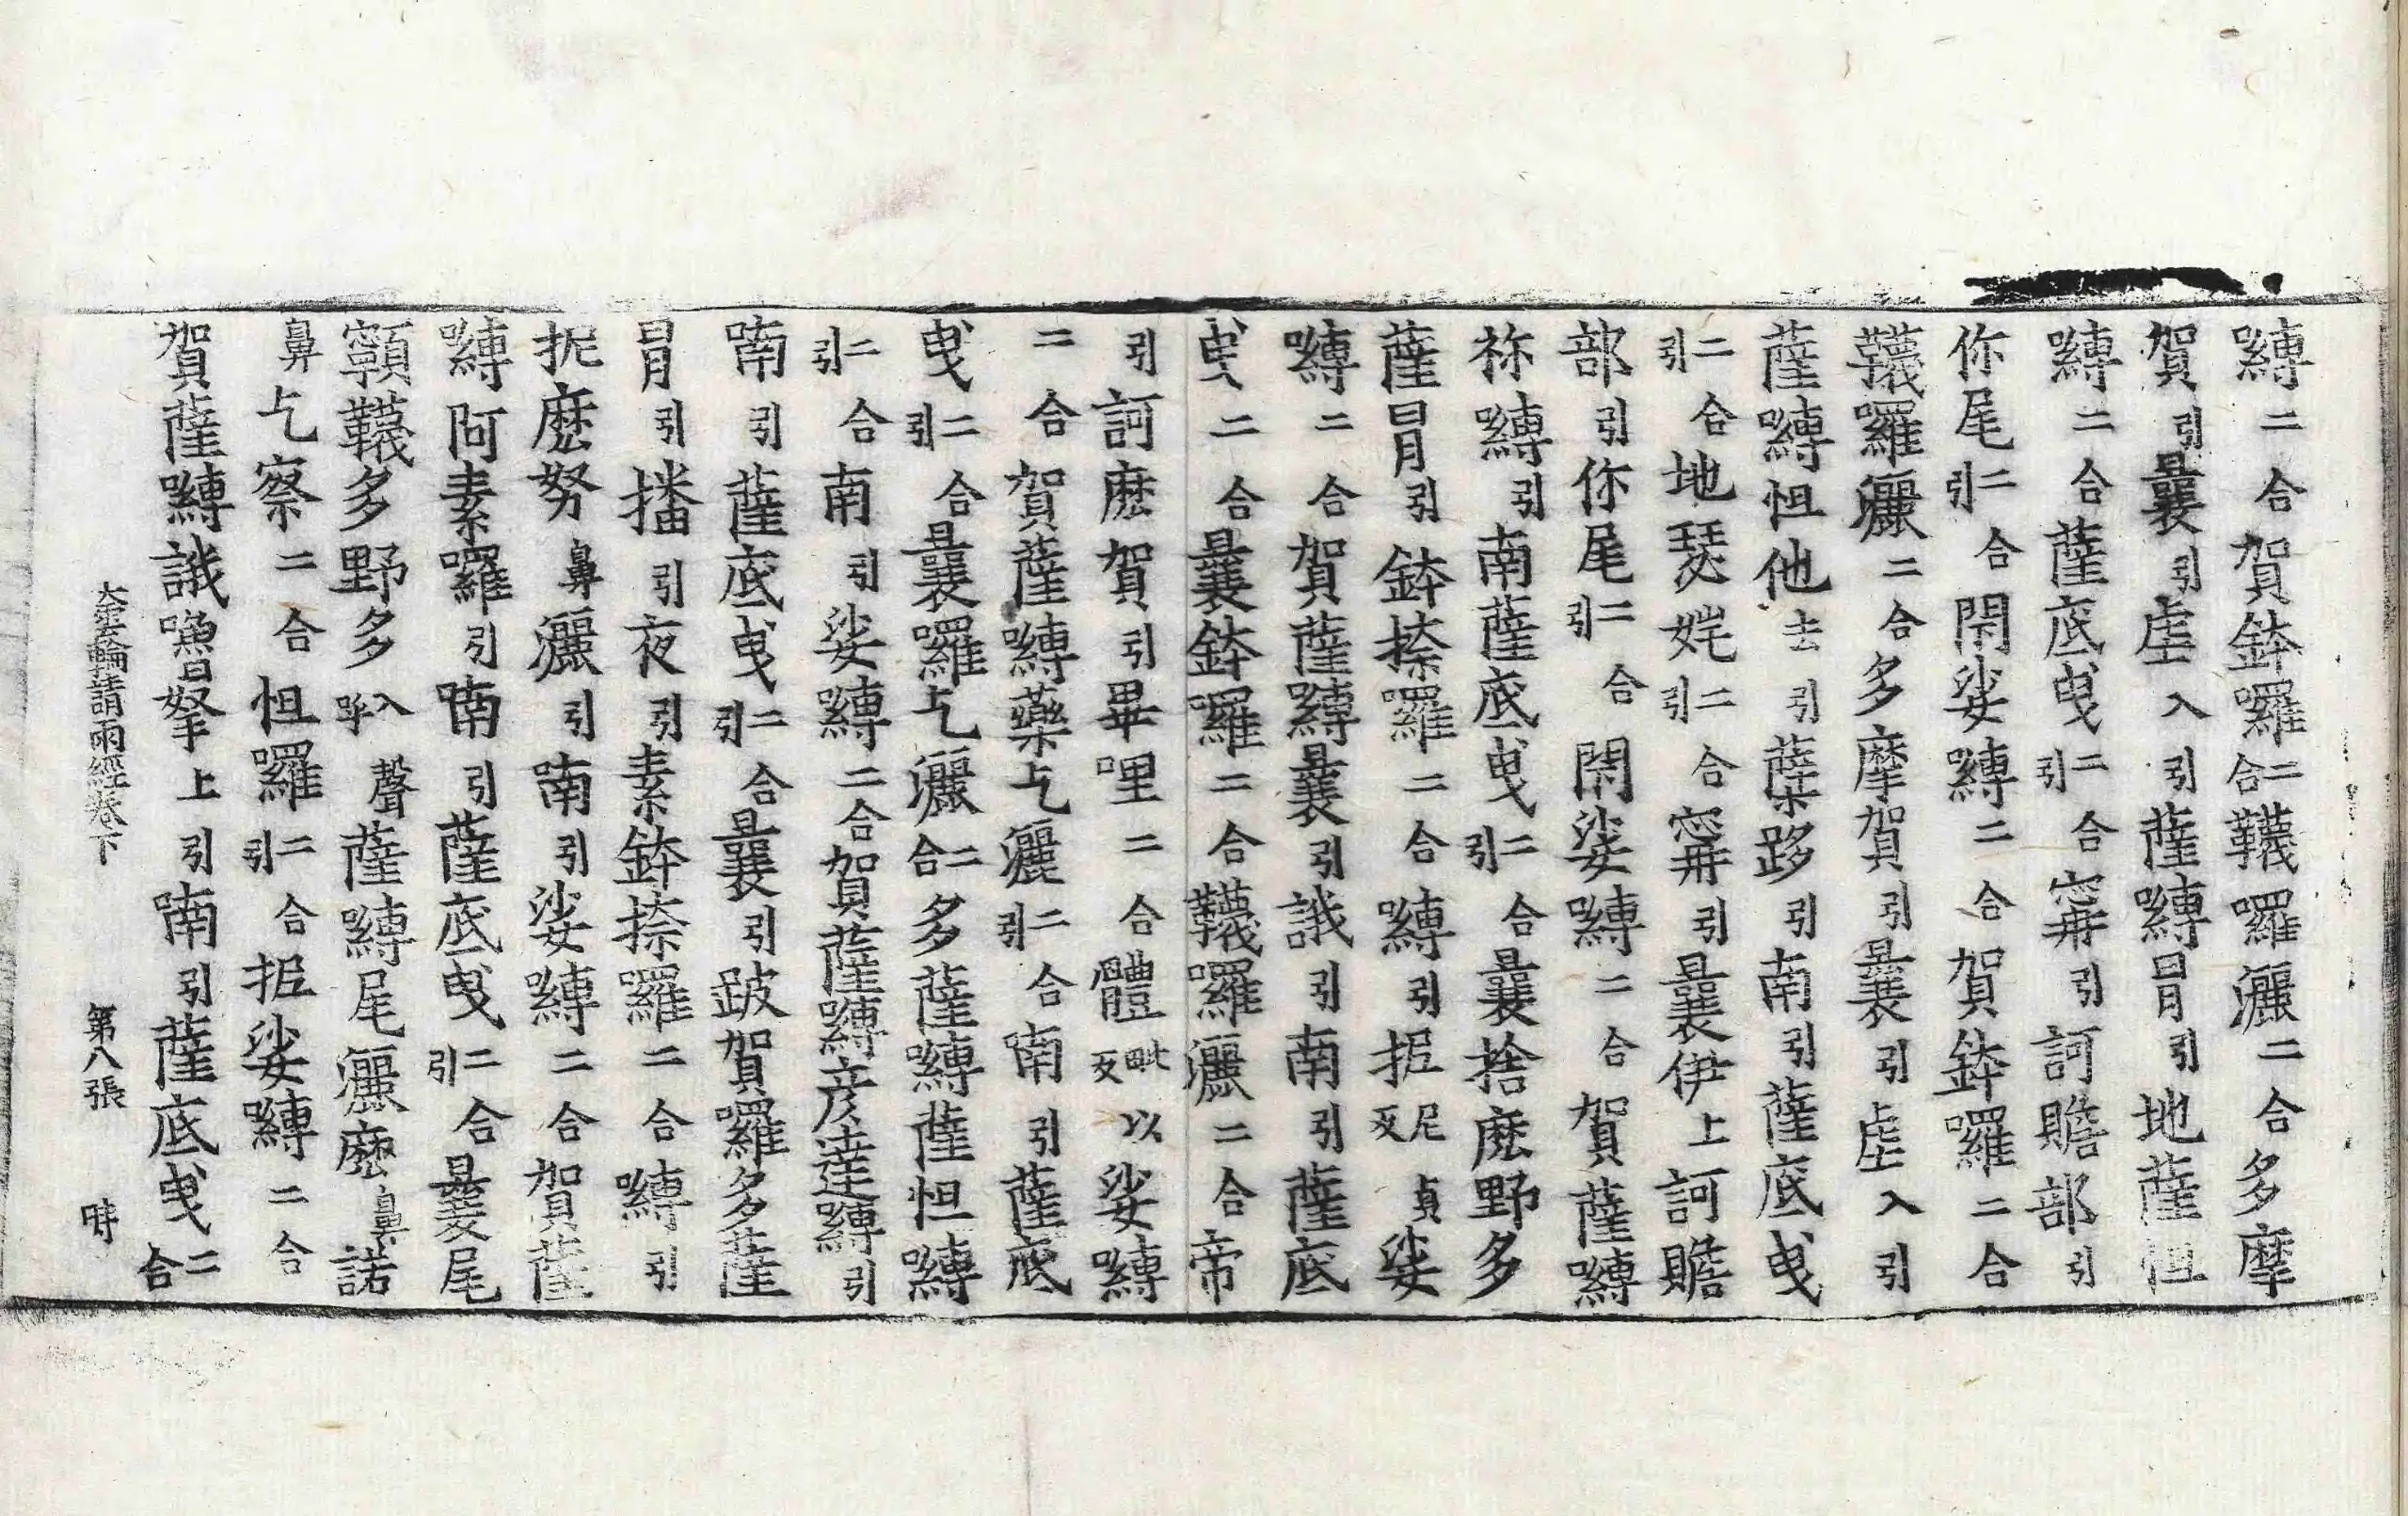 嚩二合賀鉢囉二合韈囉灑二合多摩
賀引曩引虐入引薩嚩冐引地薩怛
嚩二合薩底曳二合引寗引訶贍部引
你尾二合引閇娑嚩二合賀鉢囉二合
韈囉灑二合多摩賀引曩引虐入引
薩嚩怛他去引櫱跢引南引薩底曳
二合引地瑟姹二合引寗引曩伊上訶贍
部引你尾二合引閇娑嚩二合賀薩嚩
祢嚩引南薩底曳二合引曩捨麽野多
薩冐引鉢捺囉二合嚩引抳尼貞反娑
嚩二合賀薩嚩曩引誐引南引薩底
曳二合曩鉢囉二合韈囉灑二合帝
引訶麽賀引畢哩二合體毗以反娑嚩
二合賀薩嚩藥乞灑二合引喃引薩底
曳二合引曩囉乞灑二合多薩嚩薩怛嚩
二合引南引娑嚩二合賀薩嚩彦達嚩引
喃引薩底曳二合引曩引跛賀羅多薩
冐引播引夜引素鉢捺囉二合嚩引
抳麽努鼻灑引喃引娑嚩二合賀薩
嚩阿素囉引喃引薩底曳二合引曩尾
顐韈多野多入聲呼薩嚩尾灑麽鼻諾
鼻乞察二合怛囉二合引抳娑嚩二合
賀薩嚩誐嚕拏上引喃引薩底曳二合
大雲輪請雨經卷下　第八張　時